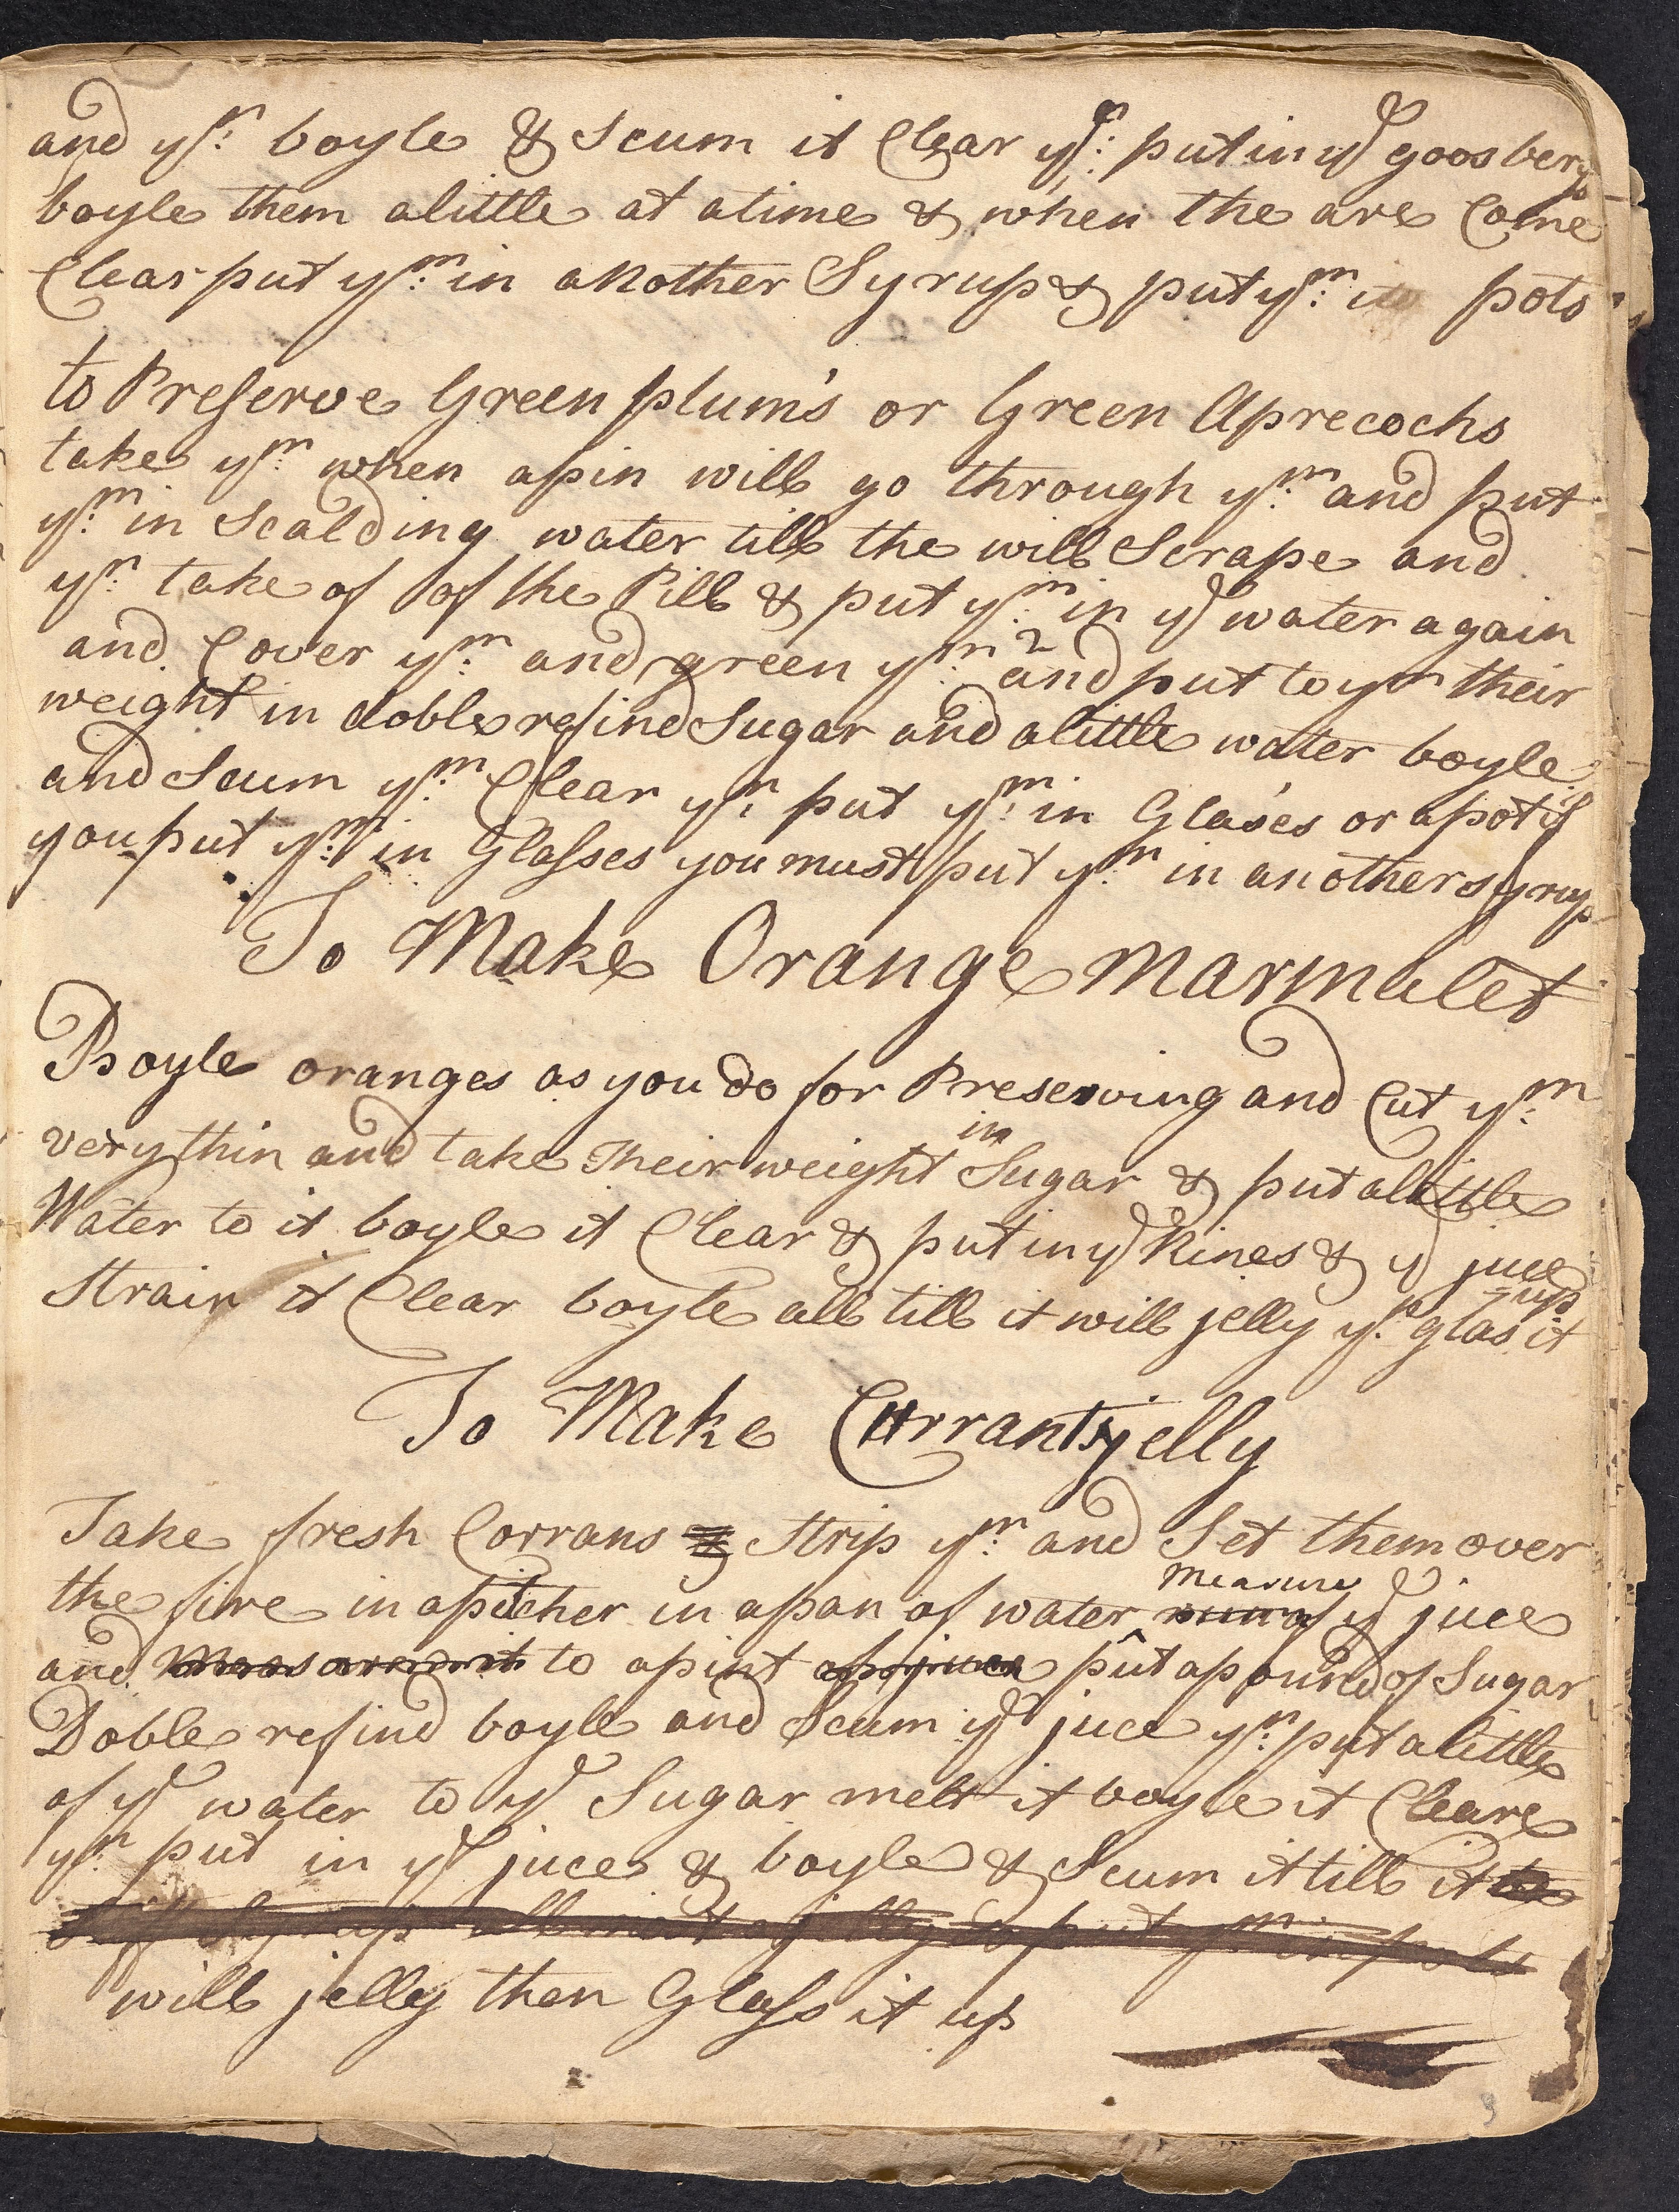 and yn: boyle & Scum it Clear yn: put in ye goosbery
boyle them a little at a time & when the are Come
Clear put ym: in another Syrup & put ym: in pots
to Preserve Green plum's or Green Aprecochs
take ym when a pin will go through ym: and put
ym: in Scalding water till the will Scrape and
yn: take of of the Pill & put ym: in ye water again
and Cover ym: and green ym: 2 and put to ym their
weight in doble refind Sugar and a little water boyle
and Scum ym: Clear yn: put ym: in Glases or a pot if
you put ym: in Glasses you must put ym: in another syrup
To Make Orange Marmalet
Boyle oranges as you do for Preserving and Cut ym:
very thin and take Their weight in Sugar & put a little
Water to it boyle it Clear & put in ye Rines & ye juce
Strain it Clear boyle all till it will jelly yn: glas it up
To Make Currants jelly
Take fresh Corrans & Strip ym: and Set them over
the fire in a pitcher in a pan of water Measure of ye juce
and to a pint put a pound of Sugar
Doble refind boyle and Scum ye juce yn: put a little
of ye water to ye Sugar melt it boyle it Cleare
yn: put in ye juce & boyle & Scum it till it
will jelly then Glass it up